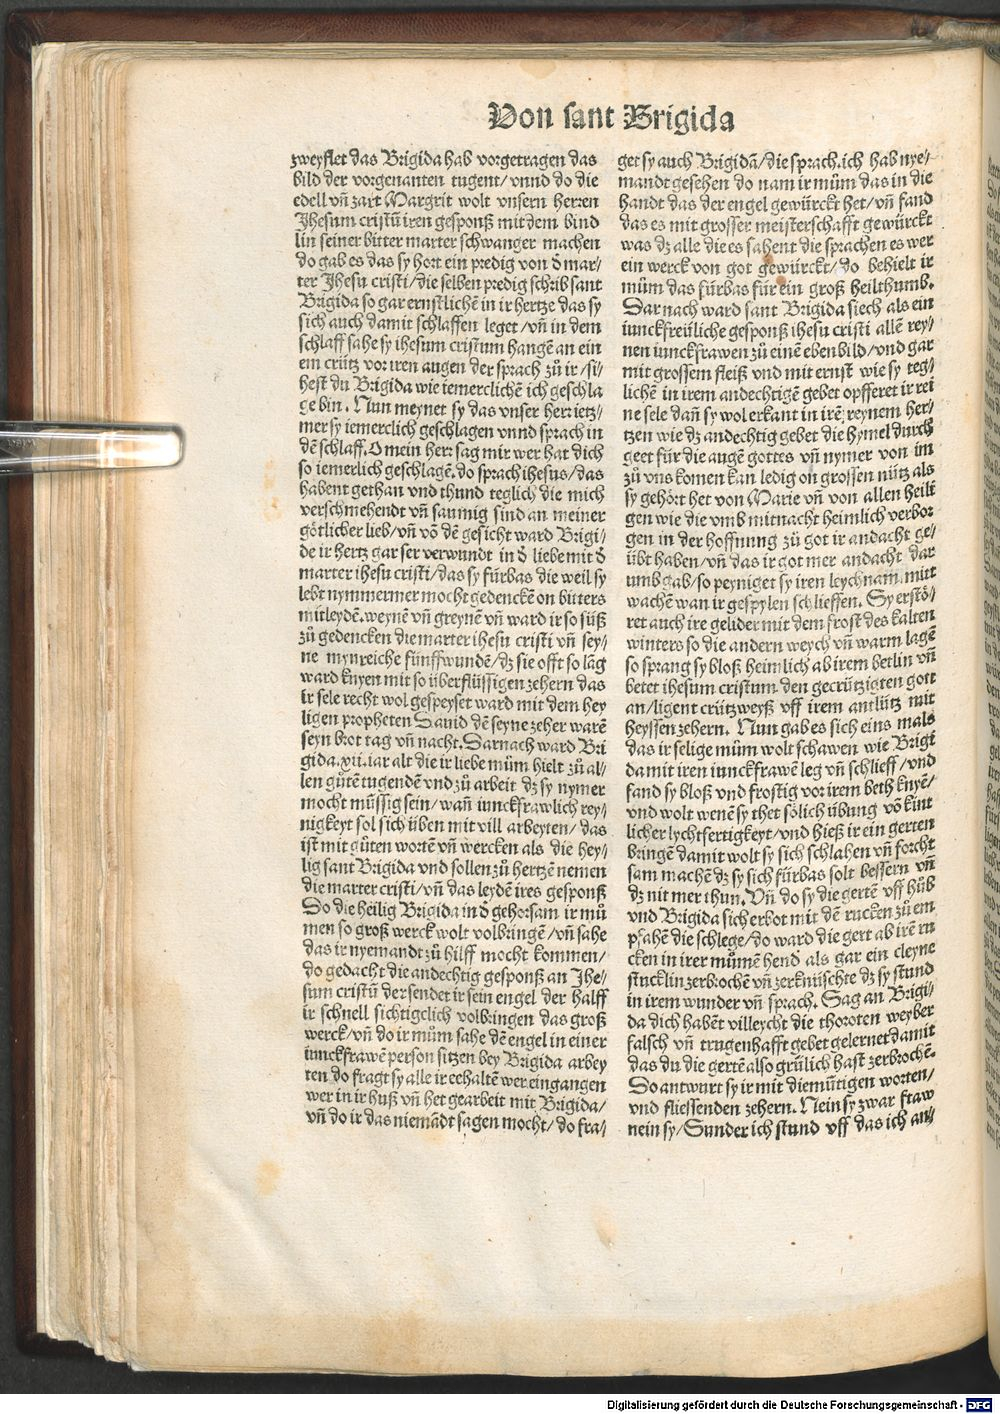 Von sant Brigida
zweyflet das Brigida hab vorgetragen das
bild der vorgenanten tugent/ vnnd do die
edell vñ zart Margrit wolt vnsern herren
Jhesum cristū iren gesponß mit dem bind
lin seiner bitter marter schwanger machen
do gab es das sy hort ein predig von d̄ mar/
ter Jhesu cristi/ die selben predig schrib sant
Brigida so gar ernstlichē in ir hertze das sy
sich auch damit schlaffen leget/ vñ in dem
schlaff sahe sy ihesum cristum hangē an ein
em crütz vor iren augen der sprach zů ir/ si/
hest du Brigida wie iemerclichē ich geschla
ge bin. Nun meynet sy das vnser herr ietz/
mer sy iemerlich geschlagen vnnd sprach in
dē schlaff. O mein herr sag mir wer hat dich
so iemerlich geschlagē. do sprach ihesus/ das
habent gethan vnd thund teglich die mich
verschmehendt vñ saumig sind an meiner
götlicher lieb/ vñ vō dē gesicht ward Brigi/
de ir hertz gar ser verwundt in d̄ liebe mit d̄
marter ihesu cristi/ das sy fürbas die weil sy
lebt nymmermer mocht gedenckē on bitters
mitleydē. weynē vñ greynē vñ ward ir so süß
zů gedencken die marter ihesu cristi vñ sey/
ne mynreiche fünffwundē/ dz sie offt so lāg
ward knyen mit so überflüssigen zehern das
ir sele recht wol gespeyset ward mit dem hey
ligen propheten Dauid dē seyne zeher warē
seyn brot tag vñ nacht. Darnach ward Bri
gida .xii. iar alt die ir liebe mům hielt zů al/
len gůtē tugendē vnd zů arbeit dz sy nymer
mocht müssig sein/ wañ iunckfrawlich rey/
nigkeyt sol sich üben mit vill arbeyten/ das
ist mit gůten wortē vñ wercken als die hey/
lig sant Brigida vnd sollen zů hertzē nemen
die marter cristi/ vñ das leydē ires gesponß
Do die heilig Brigida in d̄ gehorsam ir mů
men so groß werck wolt volbringē/ vñ sahe
das ir nyemandt zů hilff mocht kommen/
do gedacht die andechtig gesponß an Jhe/
sum cristū der sendet ir sein engel der halff
ir schnell sichtigclich volbringen das groß
werck/ vñ do ir mům sahe dē engel in einer
iunckfrawē person sitzen bey Brigida arbey
ten do fragt sy alle ir eehaltē wer eingangen
wer in ir huß vñ het gearbeit mit Brigida/
vñ do ir das niemādt sagen mocht/ do fra/
get sy auch Brigidā/ die sprach. ich hab nye/
mandt gesehen do nam ir mům das in die
handt das der engel gewürckt het/ vñ fand
das es mit grosser meisterschafft gewürckt
was dz alle die es sahent die sprachen es wer
ein werck von got gewürckt/ do behielt ir
mům das fürbas für ein groß heilthumb.
Dar nach ward sant Brigida siech als ein
iunckfreüliche gesponß ihesu cristi allē rey/
nen iunckfrawen zů einē ebenbild/ vnd gar
mit grossem fleiß vnd mit ernst wie sy teg/
lichē in irem andechtigē gebet opfferet ir rei
ne sele dañ sy wol erkant in irē reynem her/
tzen wie dz andechtig gebet die hymel durch
geet für die augē gottes vñ nymer von im
zů vns komen kan ledig on grossen nütz als
sy gehört het von Marie vñ von allen heili
gen wie die vmb mitnacht heimlich verbor
gen in der hoffnung zů got ir andacht ge/
übt haben/ vñ das ir got mer andacht dar
umb gab/ so peyniget sy iren leychnam mitt
wachē wan ir gespylen schlieffen. Sy erstö/
ret auch ire gelider mit dem frost des kalten
winters so die andern weych vñ warm lagē
so sprang sy bloß heimlich ab irem betlin vñ
betet ihesum cristum den gecrützigten gott
an/ ligent crützweyß vff irem antlütz mit
heyssen zehern. Nun gab es sich eins mals
das ir selige mům wolt schawen wie Brigi
da mit iren iunckfrawē leg vñ schlieff/ vnd
fand sy bloß vnd frostig vor irem beth knyē/
vnd wolt wenē sy thet sölich übung vō kint
licher lychtfertigkeyt/ vnd hieß ir ein gerten
bringē damit wolt sy sich schlahen vñ forcht
sam machē dz sy sich fürbas solt bessern vñ
dz nit mer thun. Vñ do sy die gertē vff hůb
vnd Brigida sich erbot mit dē rucken zů em
pfahē die schlege/ do ward die gert ab irē ru
cken in irer můmē hend als gar ein cleyne
stucklin zerbrochē vñ zerknüschte dz sy stund
in irem wunder vñ sprach. Sag an Brigi/
da dich habēt villeycht die thoroten weyber
falsch vñ trugenhafft gebet gelernet damit
das du die gertē also grülich hast zerbrochē.
Do antwurt sy ir mit diemütigen worten/
vnd fliessenden zehern. Nein sy zwar fraw
nein sy/ Sunder ich stund vff das ich an/
Digitalisierung gefördert durch die Deutsche Forschungsgemeinschaft - DFG